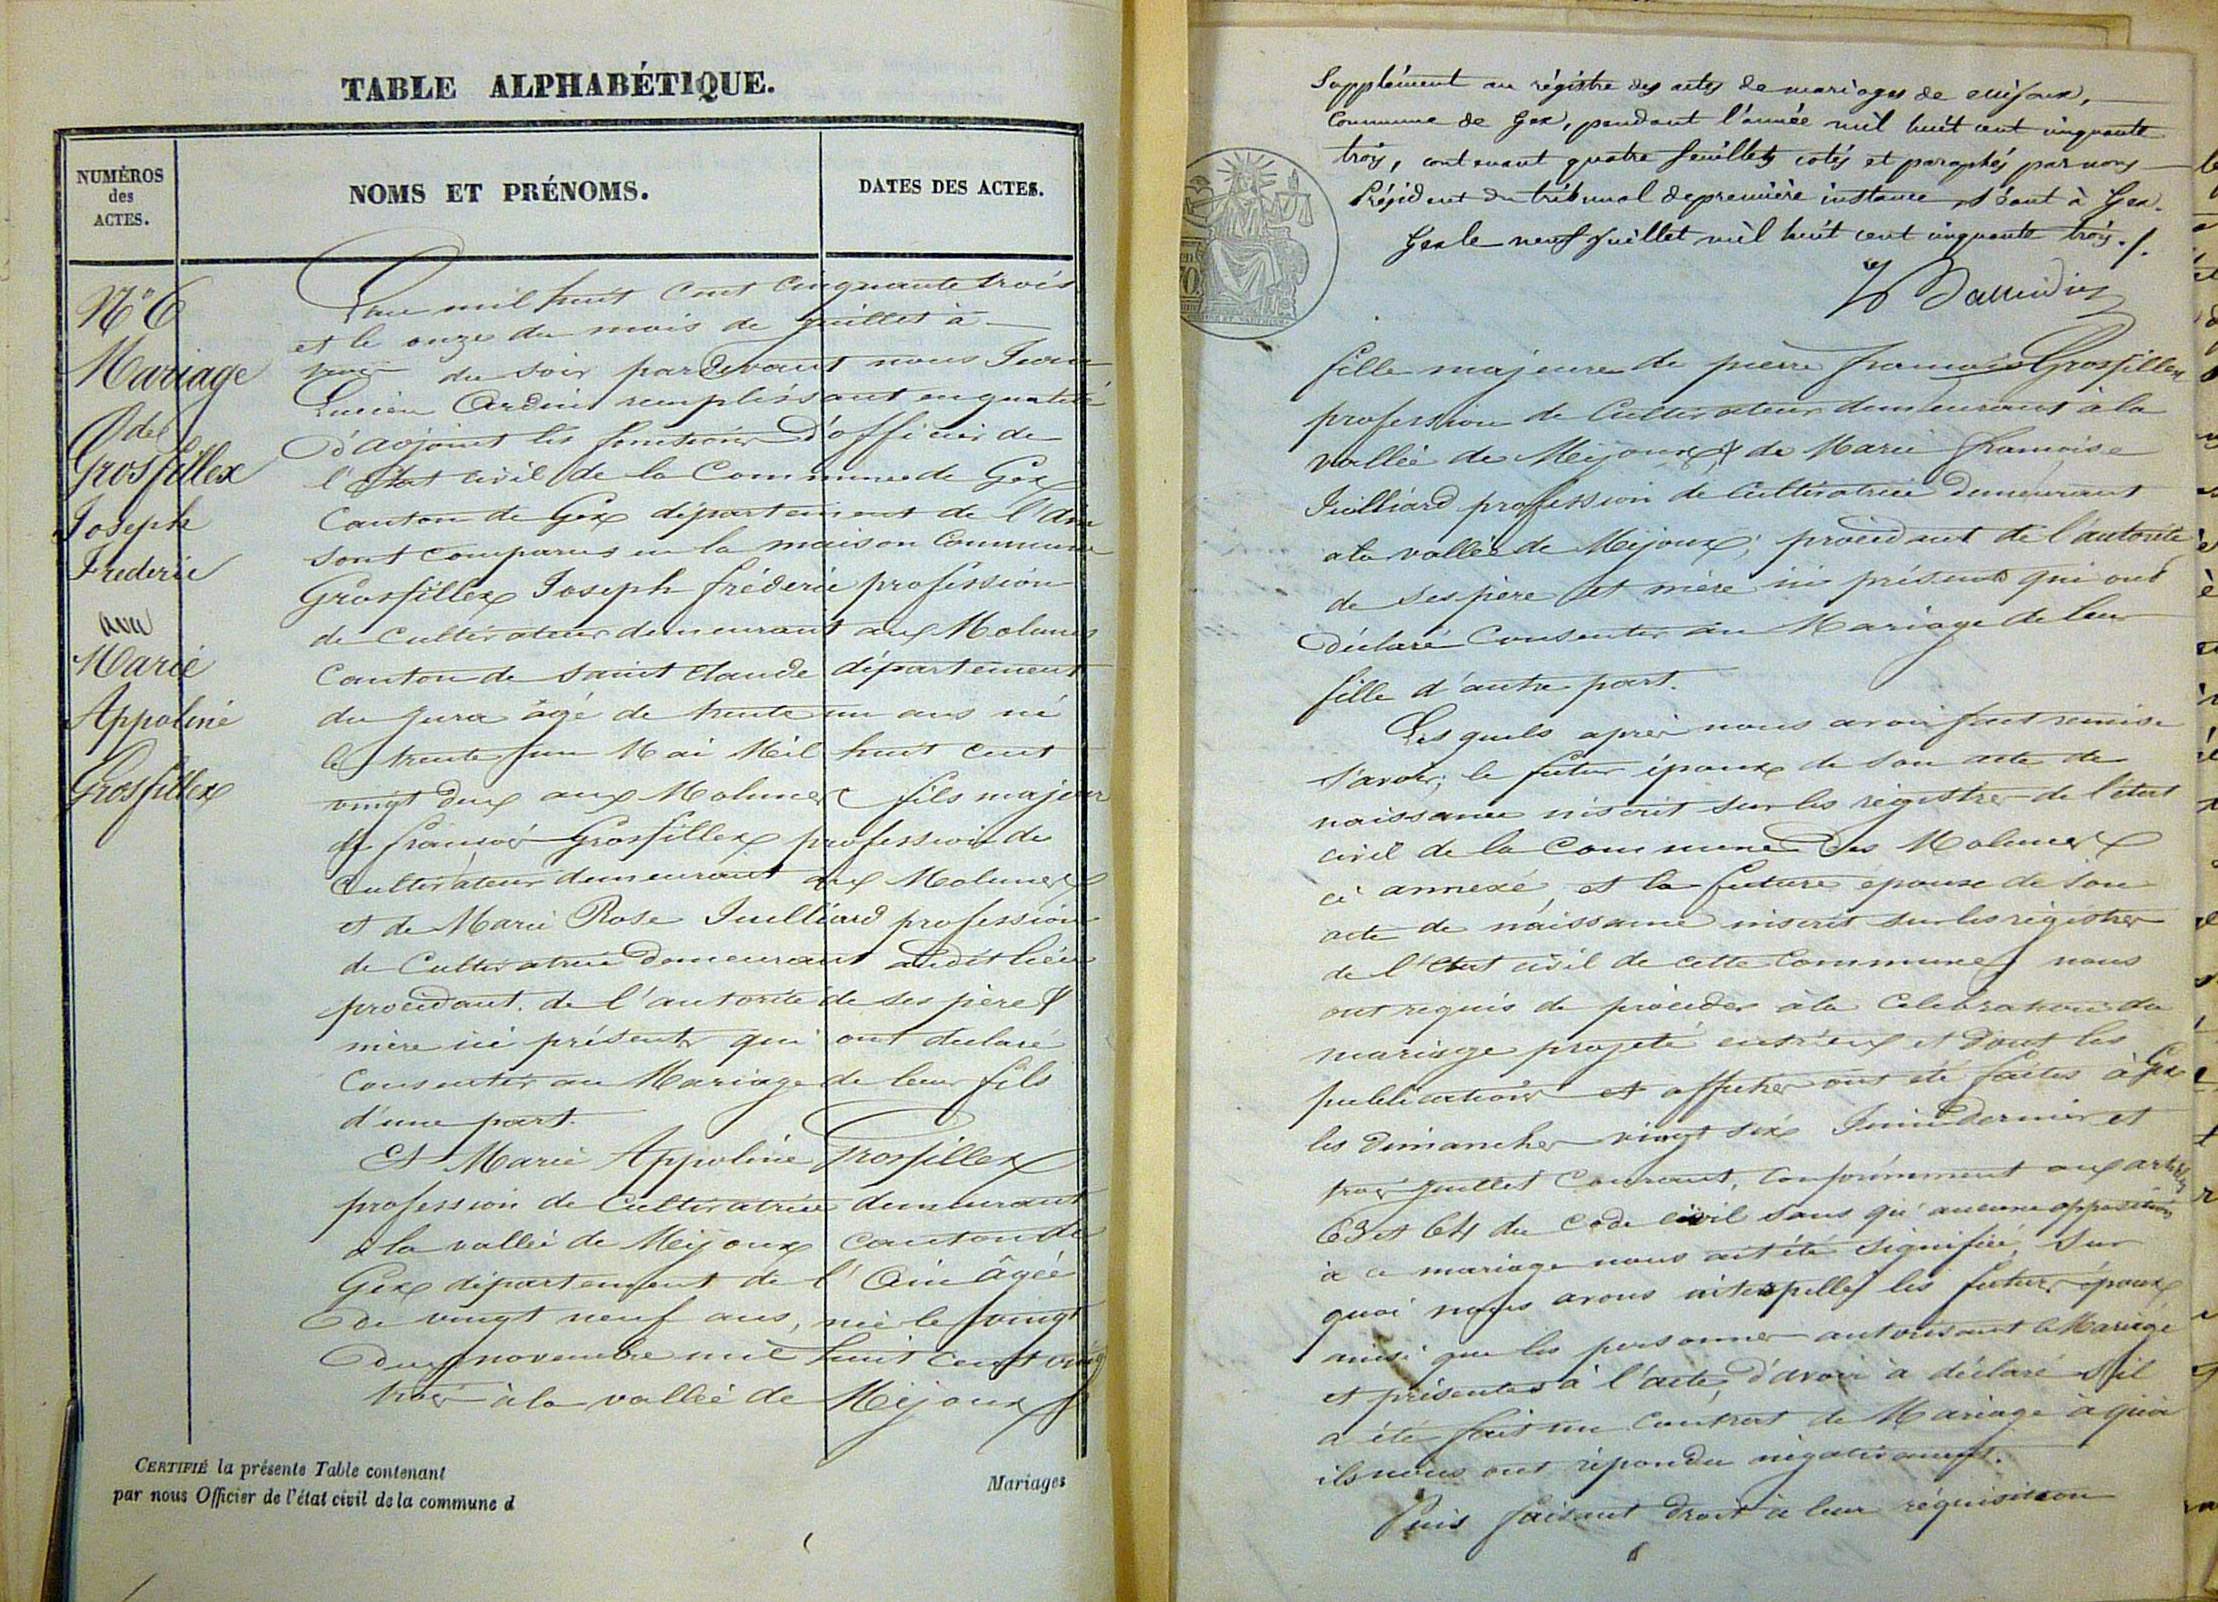 TABLE ALPHABÉTIQUE.
NUMÉROS
des
ACTES.
NOMS ET PRÉNOMS.
DATES DES ACTES.
N° 6
Mariage
de
Grosfillex
Joseph
Frederic
avec
Marie
Appoline
Grosfillex
L'an mil huit cent cinquante trois
et le onze du mois de juillet à
du soir pardevant nous Jean
Lucien remplissant en qualité
d'adjoint les fonctions d'officier de
l'Etat civil de la Commune de Gex
Canton de Gex département de l'Ain
sont comparus en la maison Commune
Grosfillex Joseph frédéric profession
de Cultivateur demeurant aux Molunes
Canton de saint Claude département
du jura âgé de trente un ans né
le trente un Mai Mil huit cent
vingt deux aux Molunes fils majeur
de françois Grosfillex profession de
Cultivateur demeurant aux Molunes
et de Marie Rose Juilliard profession
de Cultivatrice demeurant audit lieu
procédant de l'autorité de ses père &
mère ici présents qui ont déclaré
Consentir au Mariage de leur fils
d'une part.
Et Marie Appoline Grosfillex
profession de Cultivatrice demeurant
à la vallée de Mijoux canton de
Gex département de l'Ain âgée
de vingt neuf ans, née le vingt
deux novembre mil huit cent vingt
trois à la vallée de Mijoux
CERTIFIÉ la présente Table contenant
Mariages
par nous Officier de l'état civil de la commune d
Supplément au régistre des actes de mariages de Mijoux,
Commune de Gex, pendant l'année mil huit cent cinquante
trois, contenant quatre feuillets cotés et paraphés par nous
Président du tribunal de première instance, séant à Gex.
Gex le neuf juillet mil huit cent cinquante trois./.
fille majeure de pierre françois Grosfillex
profession de Cultivateur demeurant à la
vallée de Mijoux & de Marie françoise
Juilliard profession de Cultivatrice demeurant
a la vallée de Mijoux; procédant de l'autorité
de ses père et mère ici présents qui ont
déclaré Consenter au Mariage de leur
fille d'autre part.
Les quels après nous avoir fait remise
savoir; le futur époux de son acte de
naissance inscrit sur les régistres de l'état
civil de la Commune des Molunes
ci annexé, et la future épouse de son
acte de naissance inscrit sur les régistres
de l'état civil de cette Commune, nous
ont requis de procéder à la Célébration du
mariage projeté entr'eux et dont les
publications et affiches ont été faites à Gex
les dimanches vingt six Juin dernier et
trois juillet Courant, Conformément aux articles
63 et 64 du Code civil sans qu'aucune opposition
à ce mariage nous ait été signifiée, Sur
quoi nous avons interpellé les futurs époux
ainsi que les personnes autorisant le Mariage
et présentes à l'acte, d'avoir à déclaré s'il
a été fait un Contrat de Mariage à quoi
ils nous ont répondu négativement.
Puis faisant droit à leur réquisition